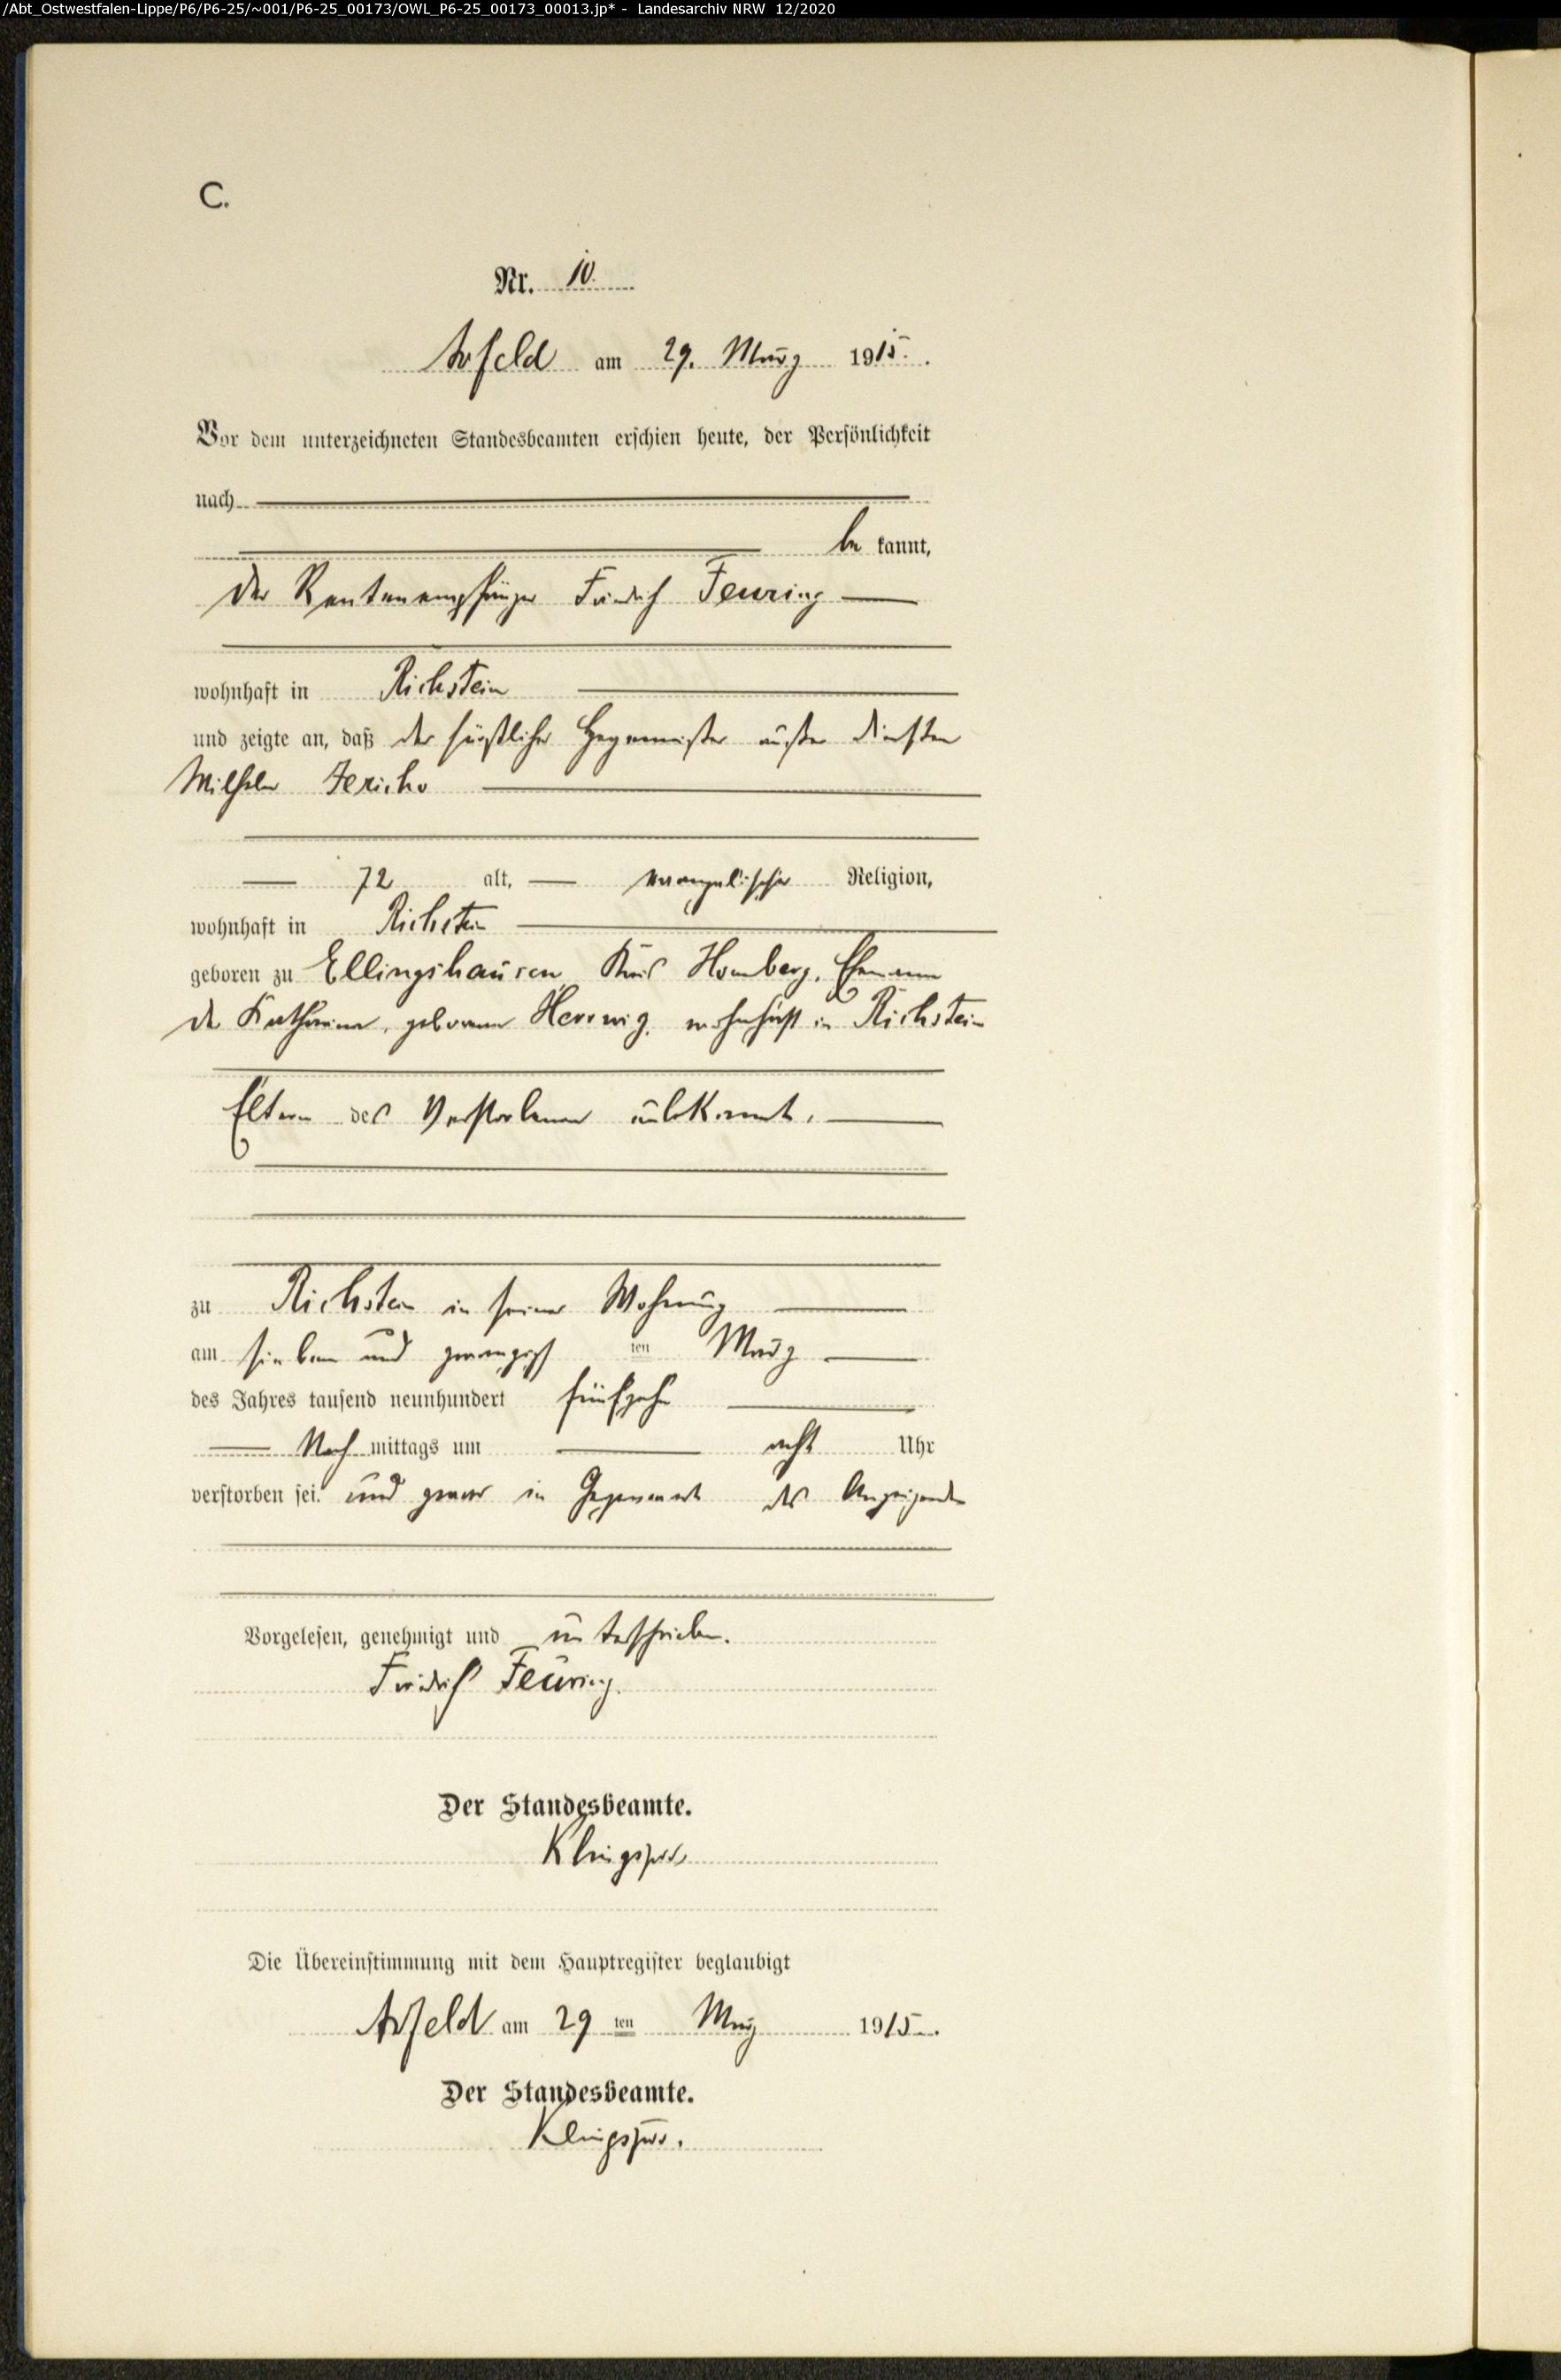 /Abt_Ostwestfalen-Lippe/P6/P6-25/~001/P6-25_00173/OWL_P6-25_00173_00013.jp* - Landesarchiv NRW 12/2020
C.
Nr. 10.
Arfeld am 29. März 1915.
Vor dem unterzeichneten Standesbeamten erschien heute, der Persönlichkeit
nach
be kannt,
der Rentenempfänger Friedrich Feuring
wohnhaft in Richstein
und zeigte an, daß der fürstlicher Hegemeister außer Diensten
Wilhelm Jericho
72 alt, evangelischer Religion,
wohnhaft in Richstein
geboren zu Ellingshausen Kreis Homberg, Ehemann
der Katharina, geborenen Herrwig, wohnhaft in Richstein
Eltern des Verstorbenen unbekannt.
zu Richstein in seiner Wohnung
am sieben und zwanzigst ten März
des Jahres tausend neunhundert fünfzehn
Nach mittags um acht Uhr
verstorben sei. und zwar in Gegenwart des Anzeigenden
Vorgelesen, genehmigt und unterschrieben.
Friedrich Feuring.
Der Standesbeamte.
Klingspor
Die Übereinstimmung mit dem Hauptregister beglaubigt
Arfeld am 29 ten März 1915.
Der Standesbeamte.
Klingspor.